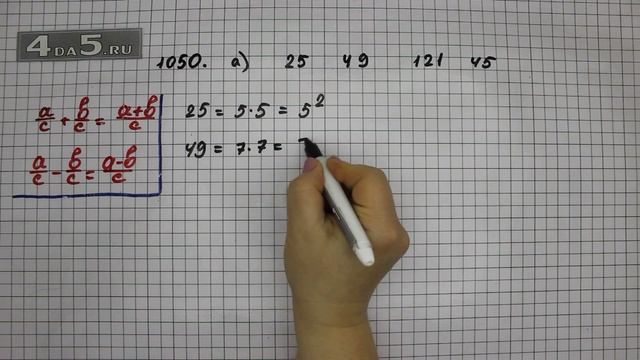 4DA5.RU
1050. а) 25 49 121 45
a/c + b/c = a+b/c
a/c - b/c = a-b/c
25 = 5·5 = 5²
49 = 7·7 =